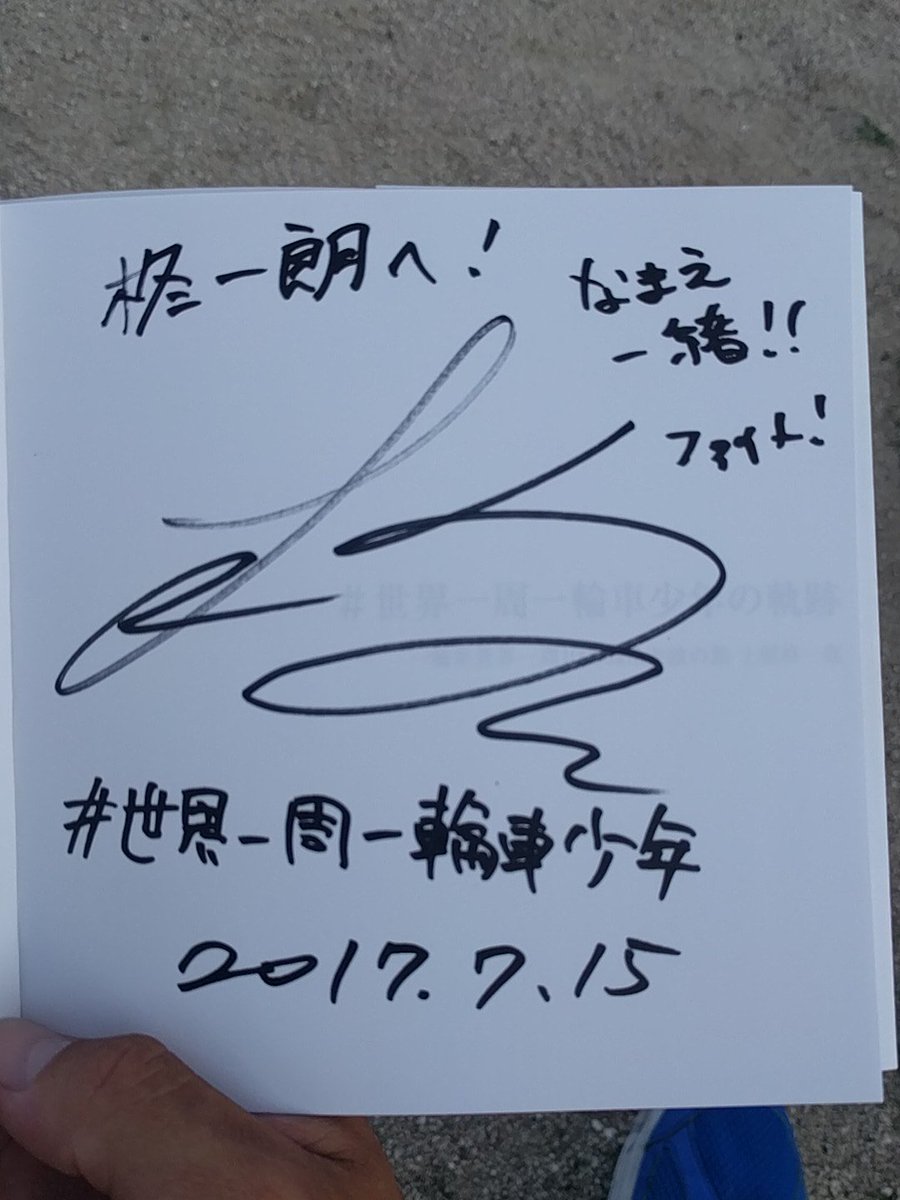 柊一朗へ!
なまえ
一緒!!
ファイト!
#世界一周一輪車少年の軌跡
#世界一周一輪車少年
2017.7.15